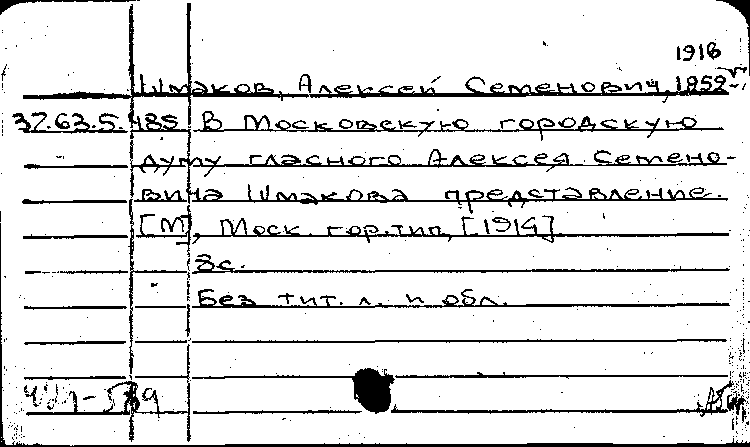 1916
Шмаков, Алексей Семенович, 1852-
37.63.5.485 В Московскую городскую
думу гласного Алексея Семено-
вича Шмакова представление.
[М], Моск. гор. тип, [1914]
8с.
Без тит. л. и обл.